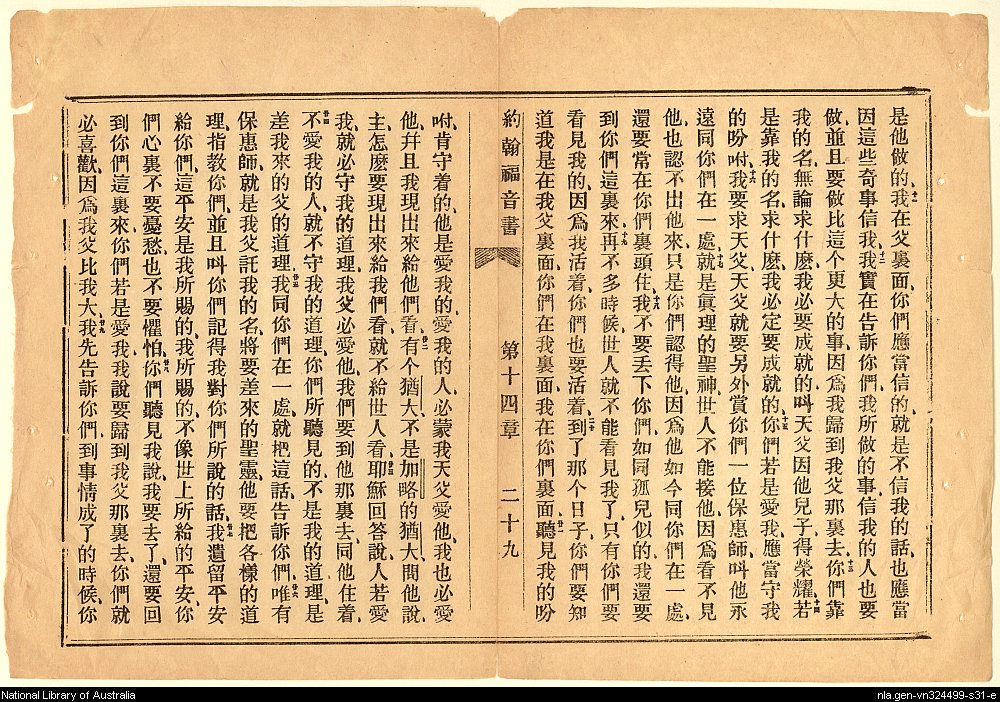 是他做的、十一我在父裏面、你們應當信的、就是不信我的話、也應當
因這些奇事信我、十二我實在告訴你們、我所做的事、信我的人也要
做、並且要做比這个更大的事、因爲我歸到我父那裏去、十三你們靠
我的名、無論求什麽、我必要成就的、叫天父因他兒子得榮耀、十四若
是靠我的名求什麽、我必定要成就的、十五你們若是愛我、應當守我
的吩咐、十六我要求天父、天父就要另外賞你們一位保惠師、叫他永
遠同你們在一處、十七就是眞理的聖神、世人不能接他、因爲看不見
他、也認不出他來、只是你們認得他、因爲他如今同你們在一處、
還要常在你們裏頭住、十八我不要丟下你們、如同孤兒似的、我還要
到你們這裏來、十九再不多時候、世人就不能看見我了、只有你們要
看見我的、因爲我活着、你們也要活着、二十到了那个日子、你們要知
道我是在我父裏面、你們在我裏面、我在你們裏面、廿一聽見我的吩
約翰福音書 第十四章 二十九
咐、肯守着的、他是愛我的、愛我的人、必蒙我天父愛他、我也必愛
他、幷且我現出來給他們看、廿二有个猶大、不是加略的猶大、問他說、
主、怎麽要現出來給我們看、就不給世人看、廿三耶穌回答說、人若愛
我、就必守我的道理、我父必愛他、我們要到他那裏去、同他住着、
廿四不愛我的人、就不守我的道理、你們所聽見的、不是我的道理、是
差我來的父的道理、廿五我同你們在一處、就把這話告訴你們、廿六唯有
保惠師、就是我父託我的名、將要差來的聖靈、他要把各樣的道
理指教你們、並且叫你們記得我對你們所說的話、廿七我遺留平安
給你們、這平安是我所賜的、我所賜的、不像世上所給的平安、你
們心裏不要憂愁、也不要懼怕、廿八你們聽見我說、我要去了、還要回
到你們這裏來、你們若是愛我、我說要歸到我父那裏去、你們就
必喜歡、因爲我父比我大、廿九我先告訴你們、到事情成了的時候、你
National Library of Australia
nla.gen-vn324499-s31-e